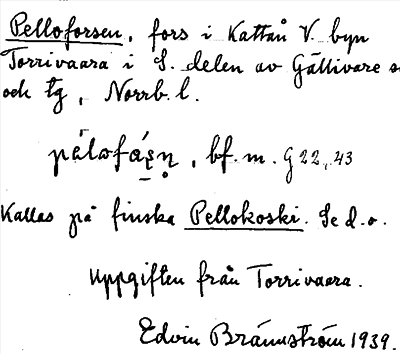 Pelloforsen, fors i Kattån V. byn
Torrivaara i S. delen av Gällivare s
och tg, Norrb. l.
pälofás̱ṇ, bf. m. G 22, 43
Kallas på finska Pellokoski. Se d. o.
Uppgiften från Torrivaara.
Edvin Brännström 1939.